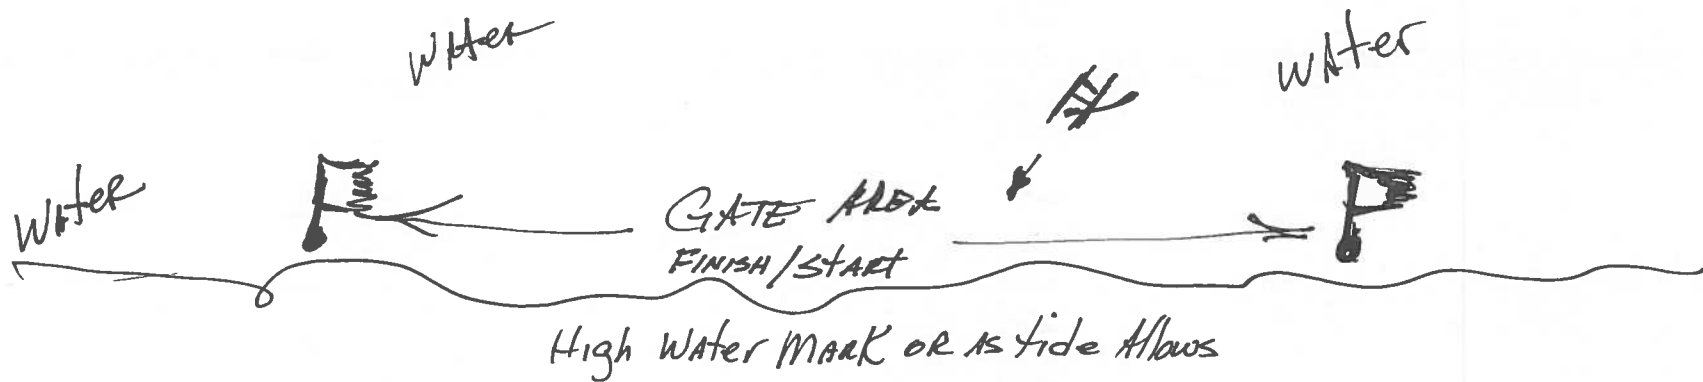 Water
Water
Water
GATE AREA
FINISH/START
High Water MARK OR AS tide Allows